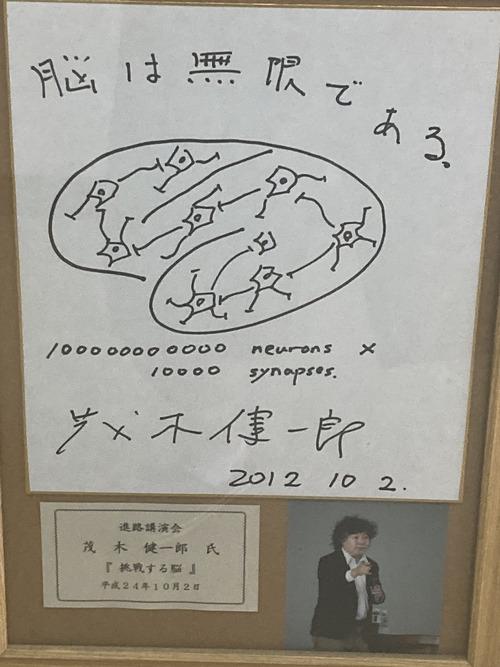 脳は無限である。
100000000000 neurons ×
10000 synapses.
茂木健一郎
2012 10 2.
進路講演会
茂木 健一郎 氏
『 挑戦する脳 』
平成24年10月2日